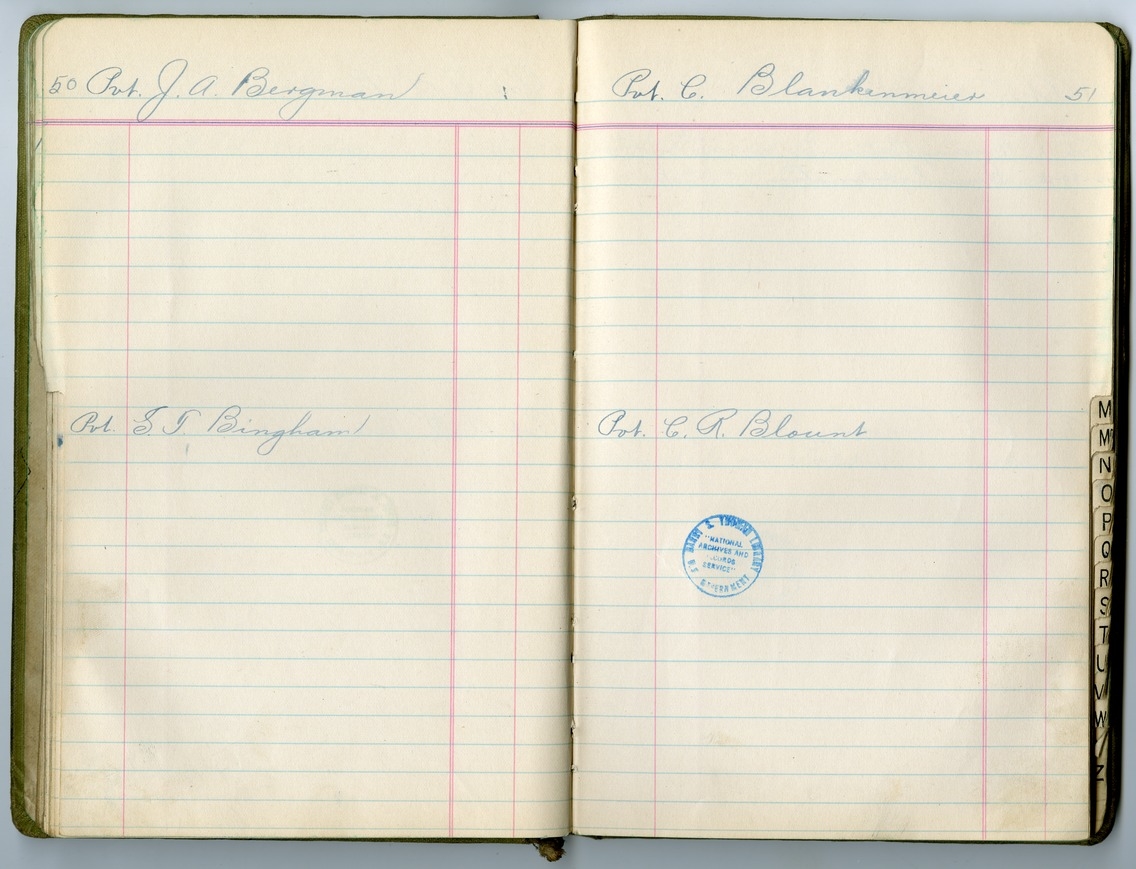 50 Pvt. J. A. Bergman
Pvt. S. T. Bingham
Pvt. C. Blankenmeier 51
Pvt. C. R. Blount
HARRY S. TRUMAN LIBRARY
"NATIONAL
ARCHIVES AND
RECORDS
SERVICE"
U.S. GOVERNMENT
M
Mc
N
O
P
Q
R
S
T
U
V
W
Y
Z